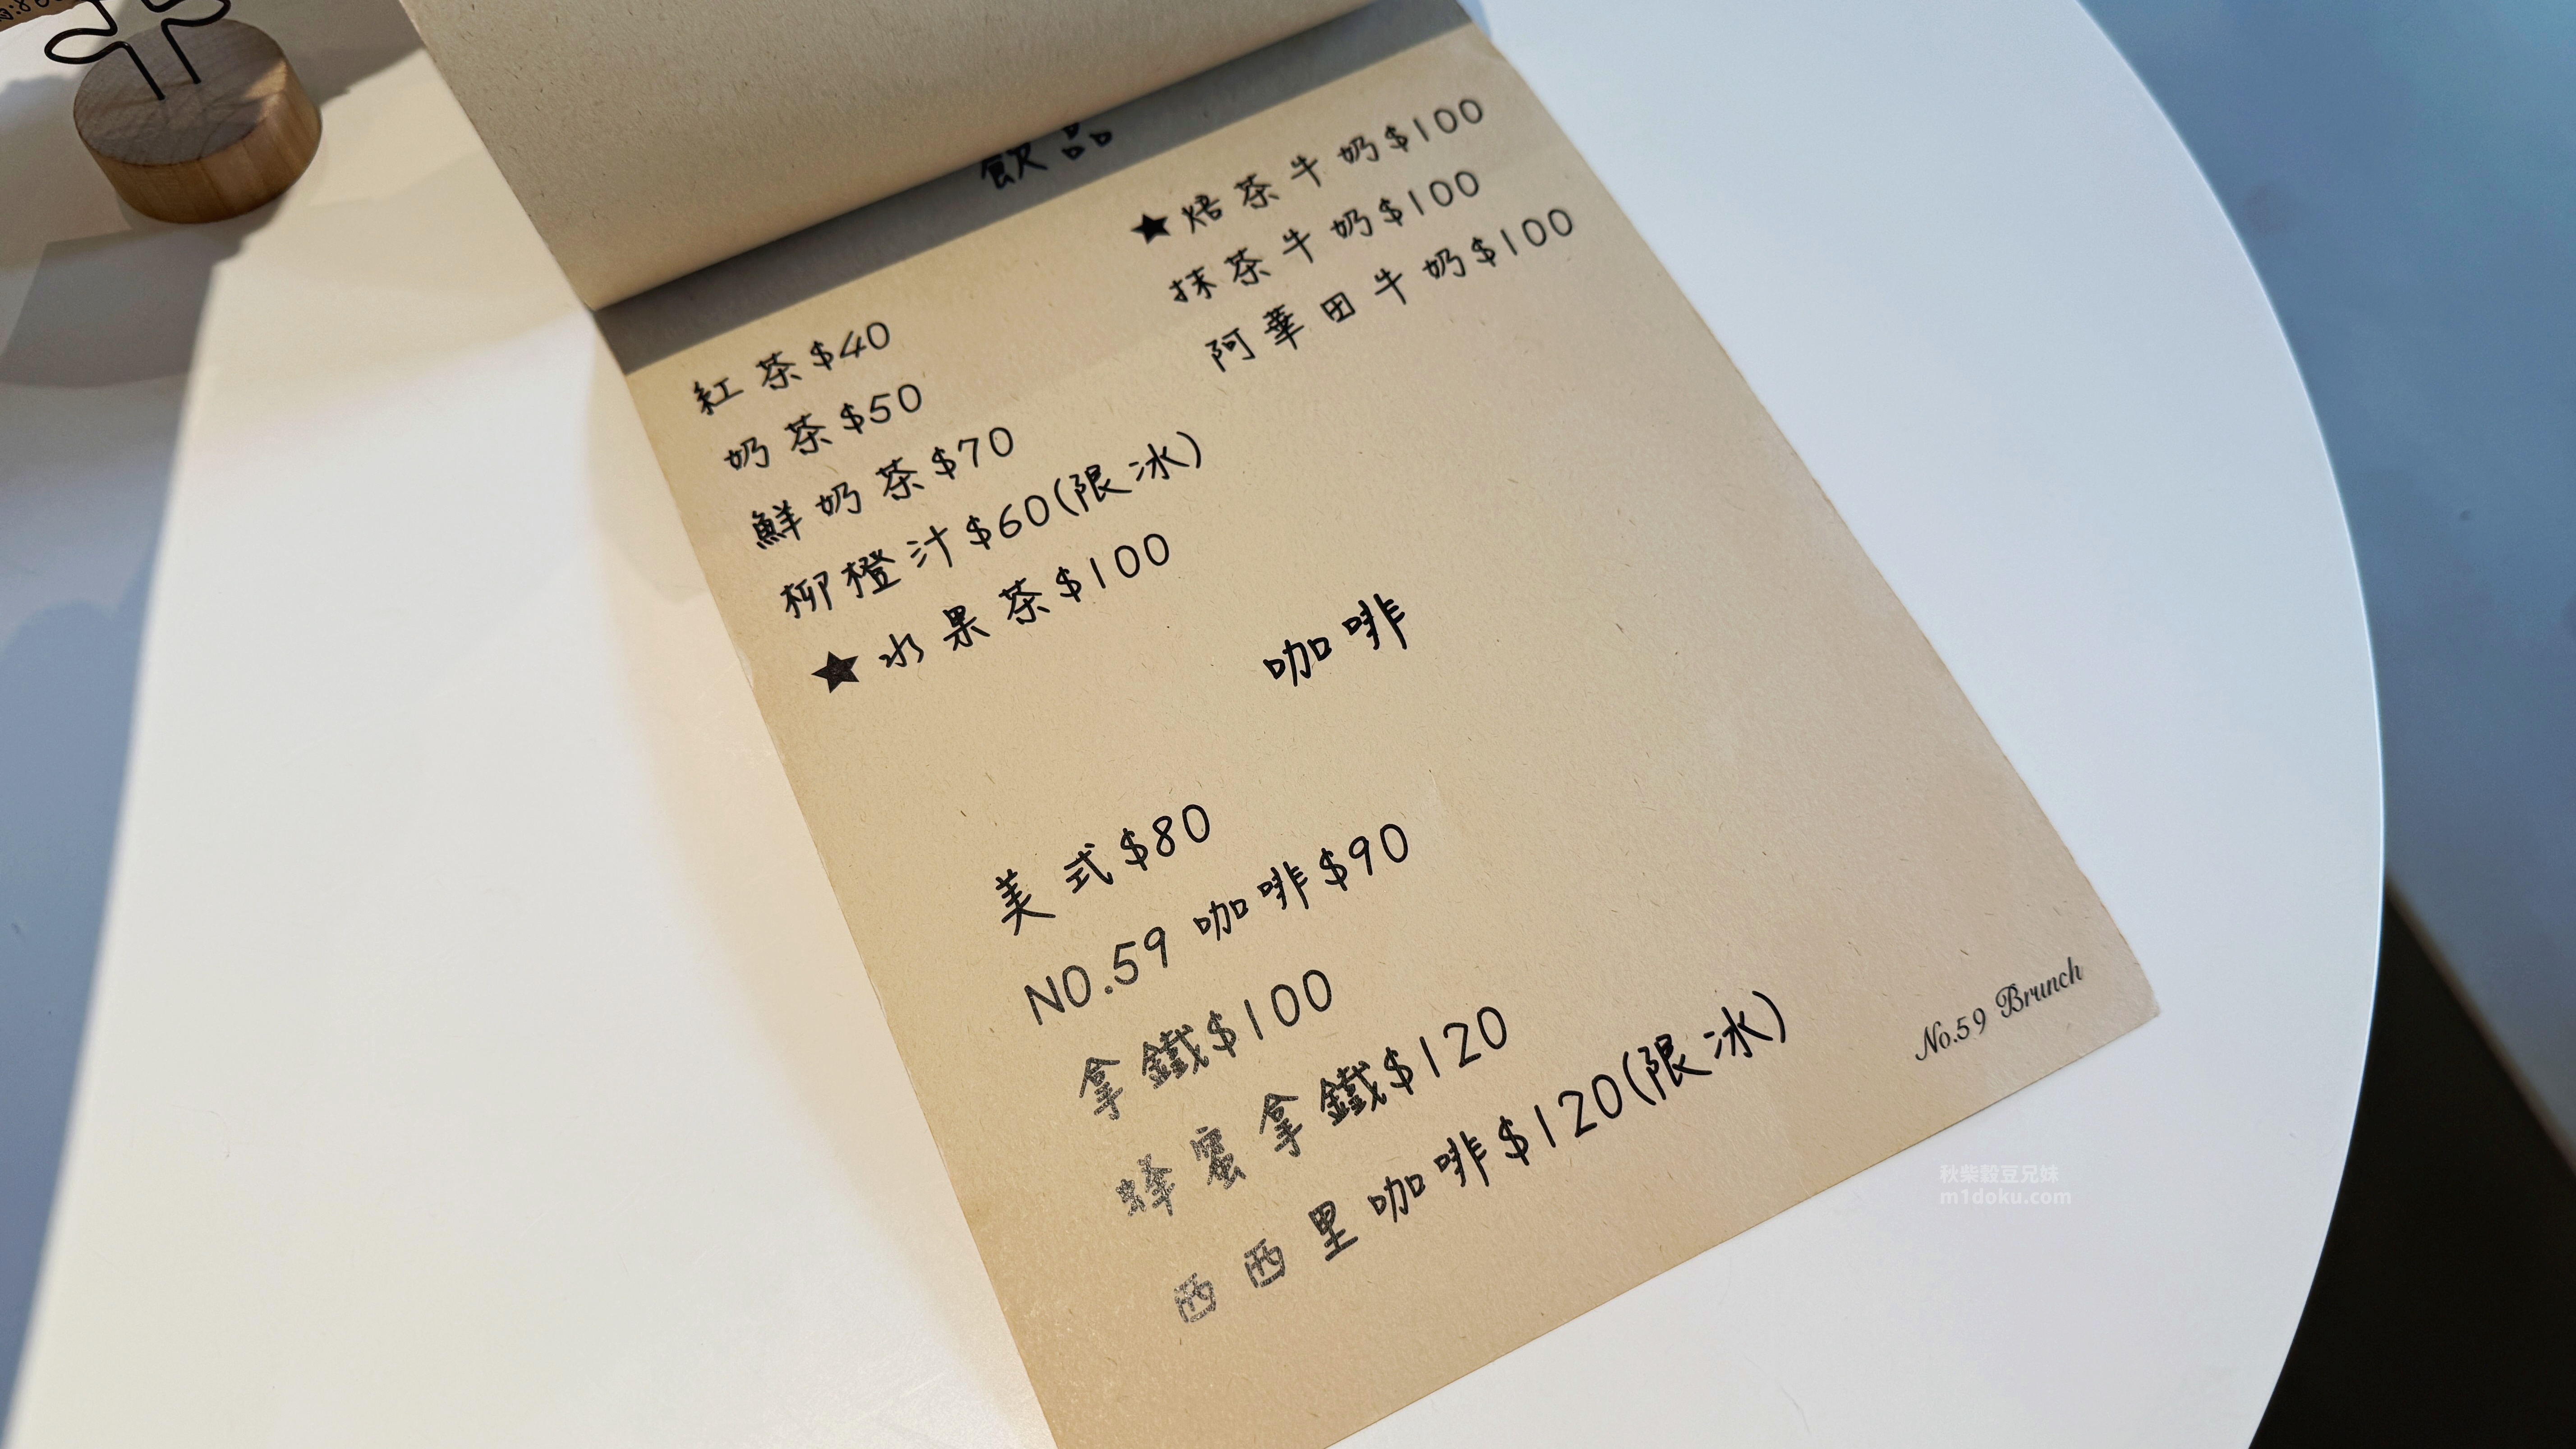 飲品
紅茶$40
奶茶$50
鮮奶茶$70
柳橙汁$60(限冰)
★水果茶$100
★焙茶牛奶$100
抹茶牛奶$100
阿華田牛奶$100
咖啡
美式$80
NO.59 咖啡$90
拿鐵$100
蜂蜜拿鐵$120
西西里咖啡$120(限冰)
No.59 Brunch
秋柴穀豆兄妹
m1doku.com